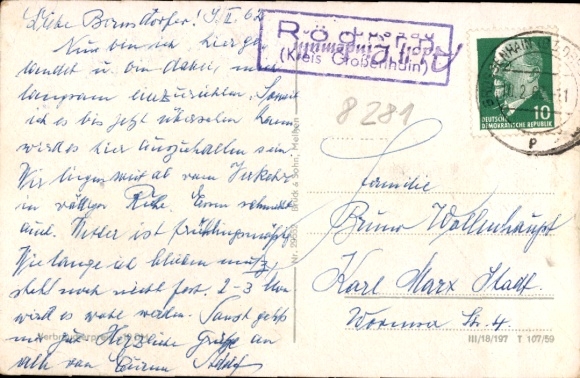 Liebe Bernsdorfer! 9. II. 62
Nun bin ich hier ge-
landet u. bin dabei, mich
langsam einzurichten. Soweit
ich es bis jetzt übersehen kann
wird es hier auszuhalten sein.
Wir liegen weit ab vom Verkehr
in völliger Ruhe. Essen schmeckt
auch. Wetter ist frühlingsmäßig
Wie lange ich bleiben muß,
steht noch nicht fest. 2-3
wird es wohl werden. Sonst geht's
mir gut. Herzliche Grüße an
alle von Eurem Adolf
Röd
(Kreis Großenhain)
8281
GROSSENHAIN
DEUTSCHE
DEMOKRATISCHE REPUBLIK
10
Familie
Bruno Wollenhaupt
Karl Marx Stadt
Str. 4
Brück & Sohn, Meißen
III/18/197 T 107/59